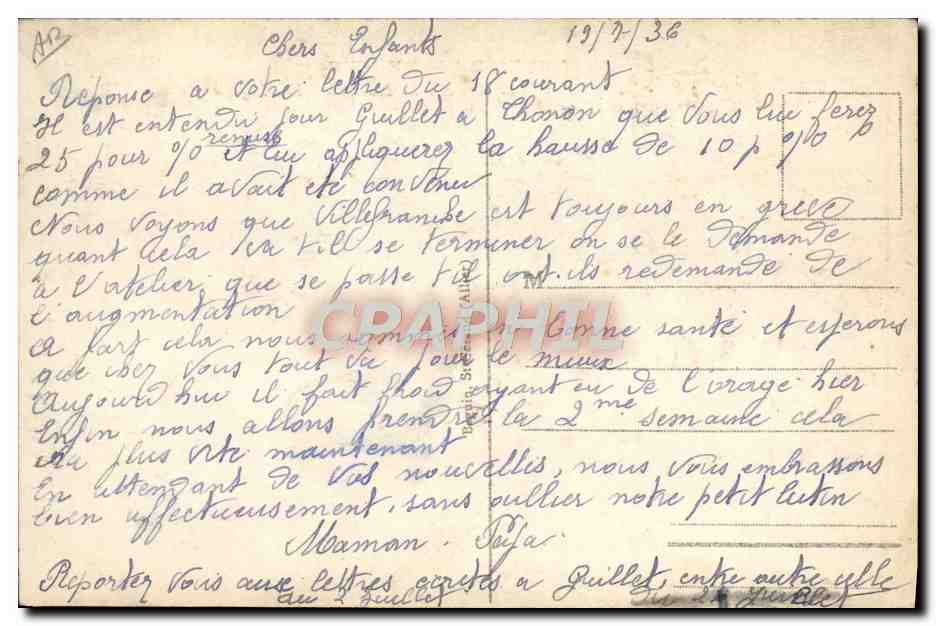 AR
Chers Enfants 19/7/36
Reponse a votre lettre du 18 courant
Il est entendu pour Guillet a Thonon que vous lui ferez
25 pour % remise et lui appliquerez la hausse de 10 p %
comme il avait eté convenu
Nous voyons que Villefranche est toujours en greve
quant cela va til se terminer on se le demande
à l'atelier, que se passe til ont-ils redemandé de
l'augmentation
A part cela nous sommes en bonne santé et esperons
que chez vous tout va pour le mieux
Aujourd'hui il fait froid ayant eu de l'orage hier
Enfin nous allons prendre la 2me semaine cela
va plus vite maintenant
En attendant de vos nouvelles, nous vous embrassons
bien affectueusement, sans oublier notre petit lutin
Maman - Papa
Reportez vous aux lettres ecrites a Guillet, entre autre celle
du 2 Juillet
M
CRAPHIL